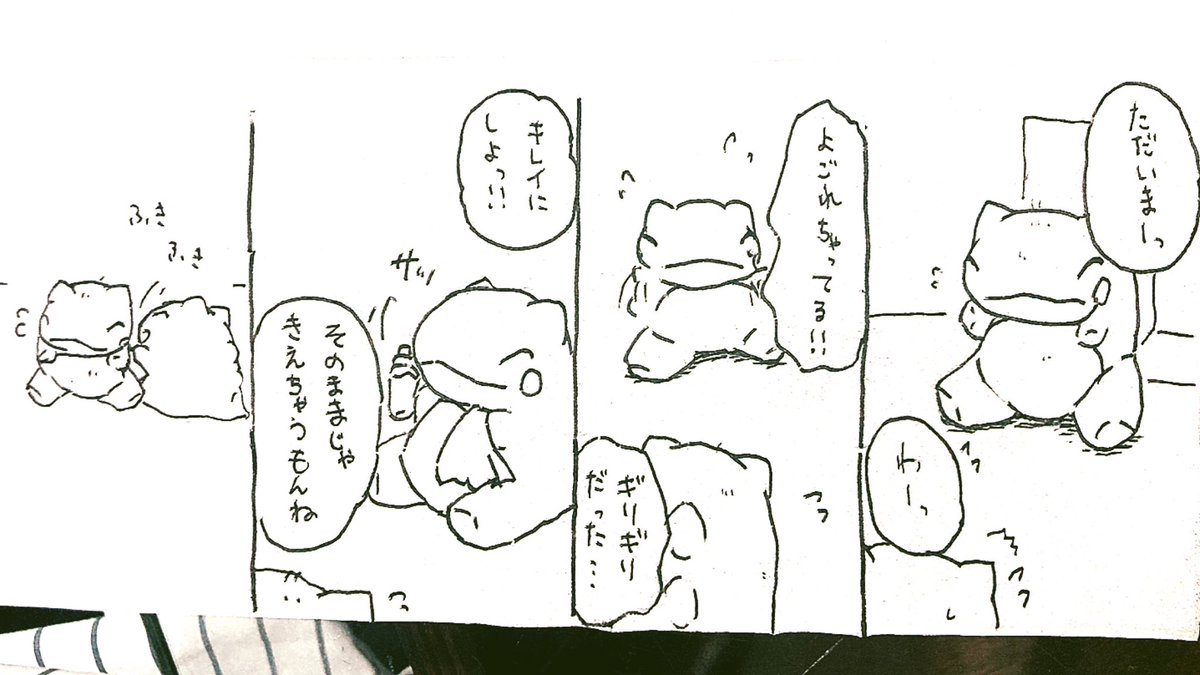 ただいまーっ
わーっ
よごれちゃってる!!
ギリギリ
だった…
キレイに
しよっ!!
サッ
そのままじゃ
きえちゃうもんね
ふき
ふき